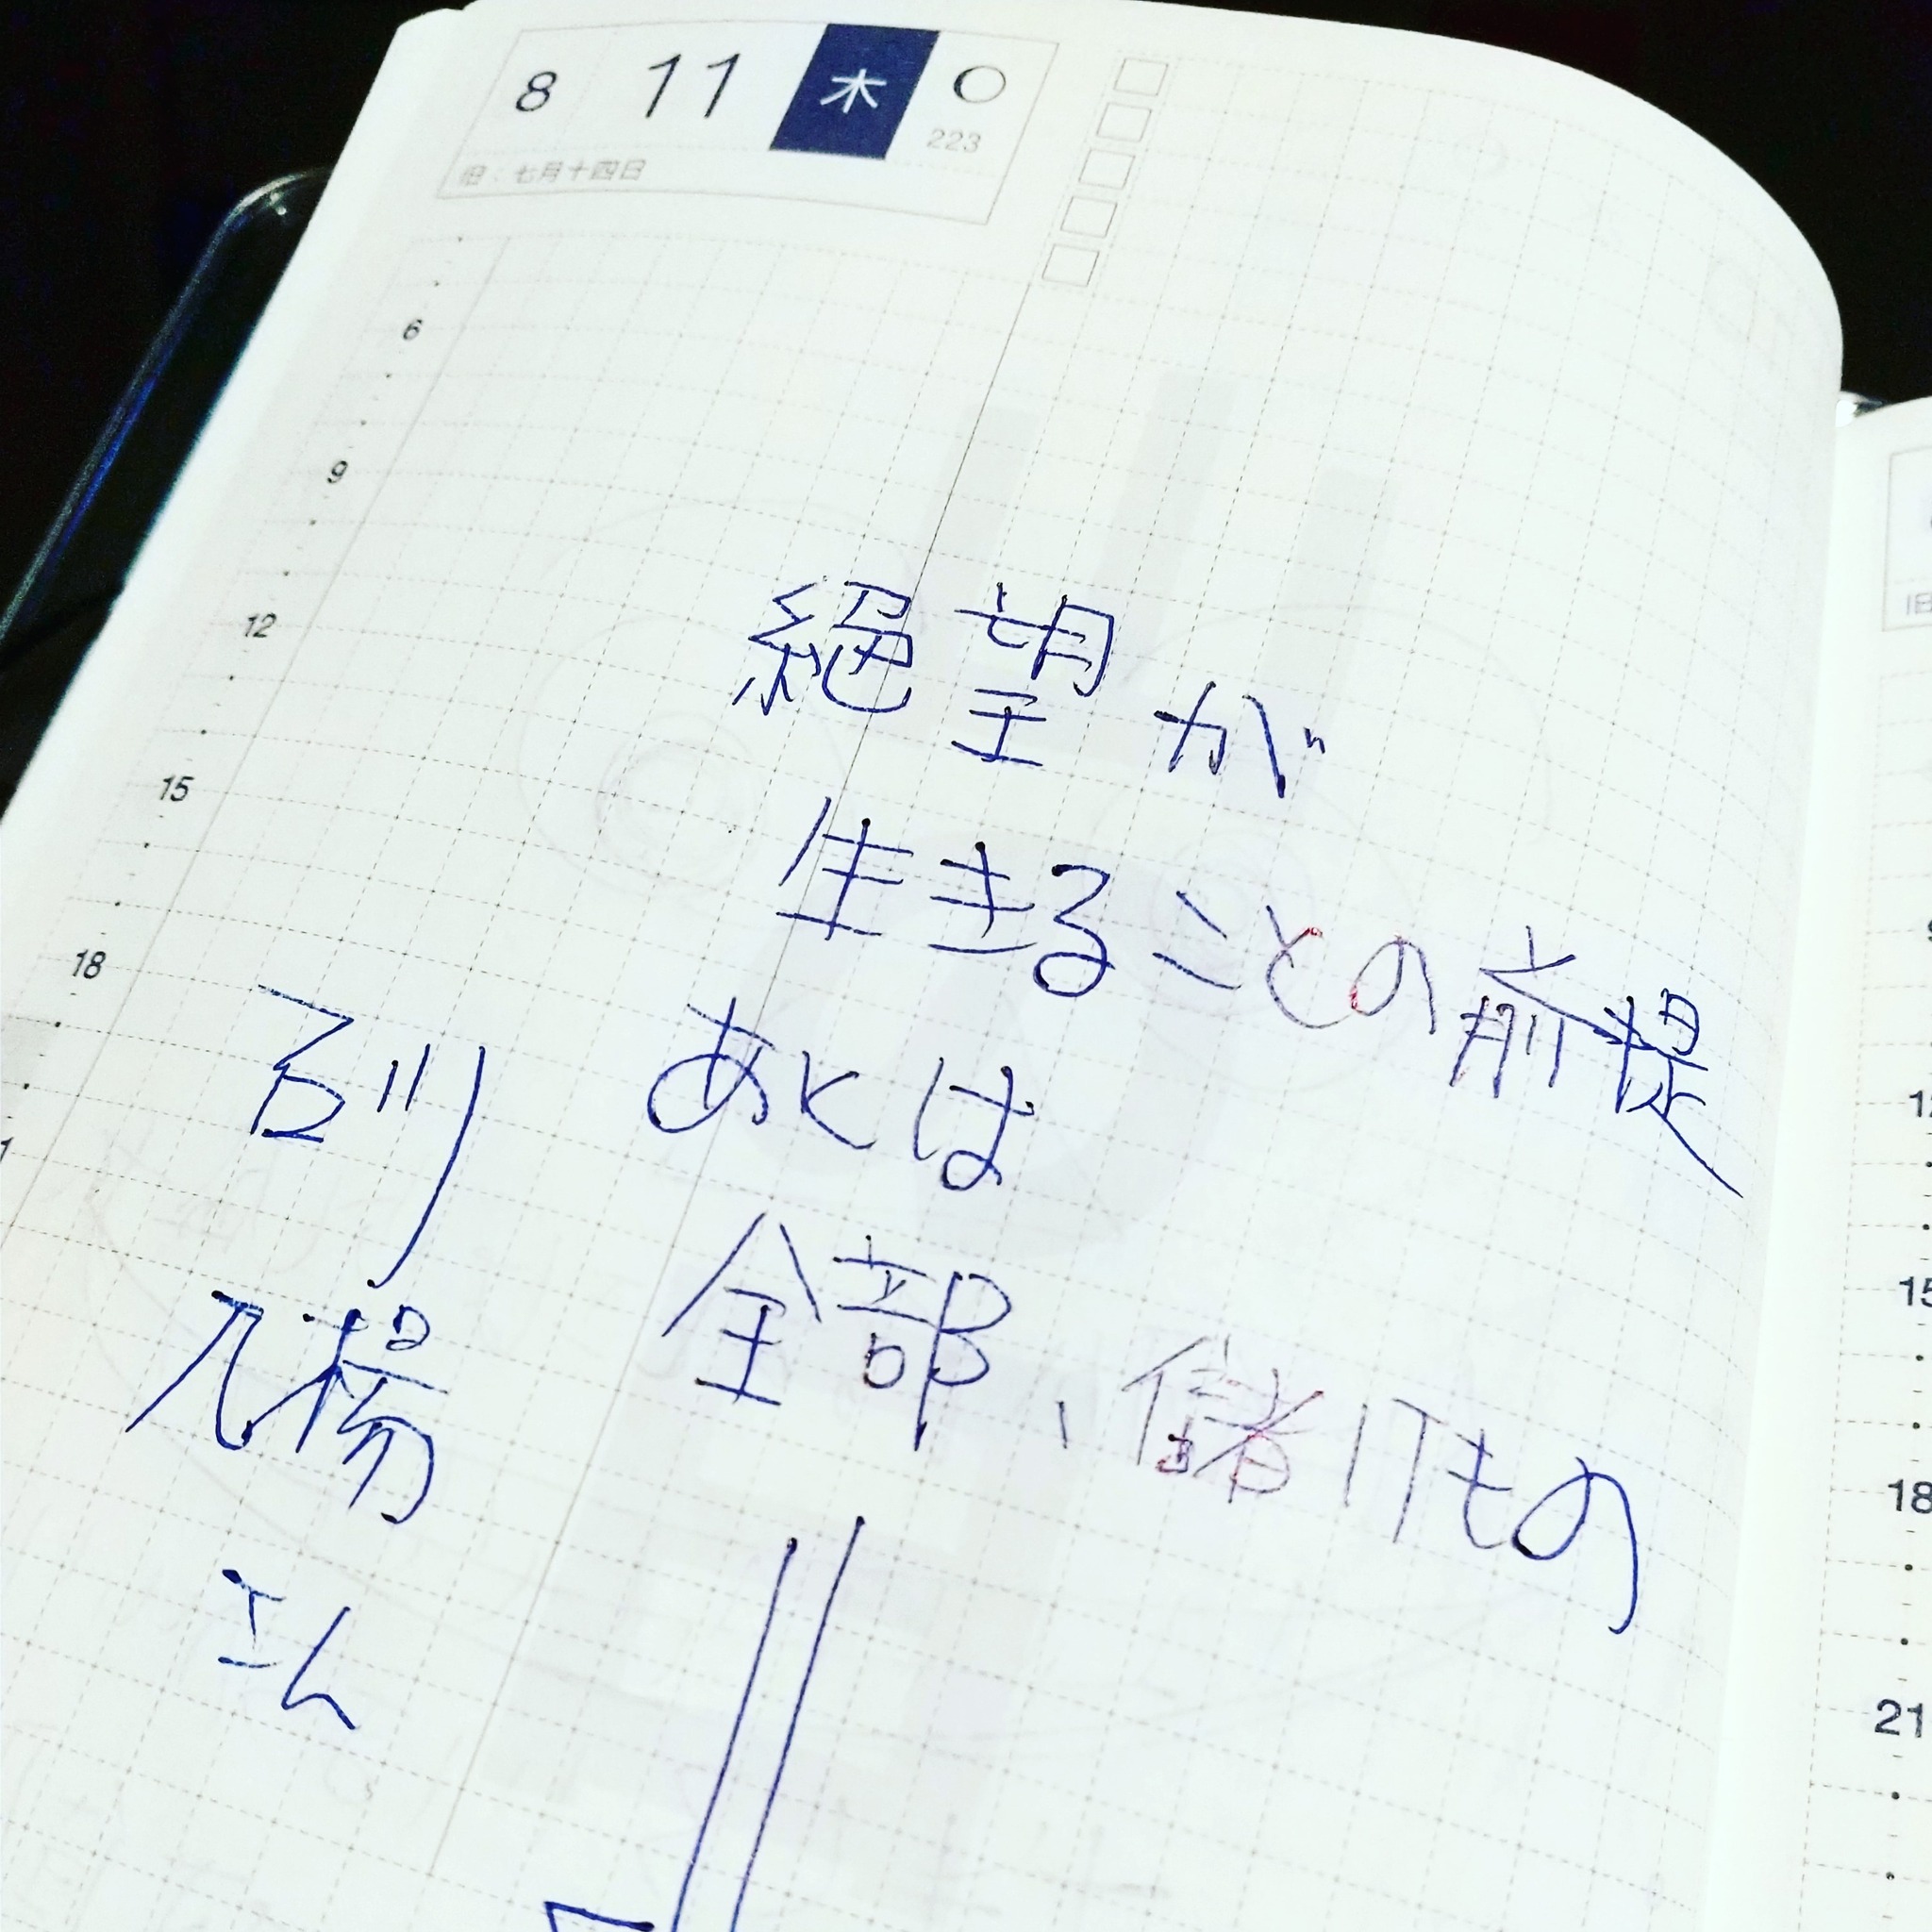 8 11 木
223
旧：七月十四日
6
9
12
15
18
絶望が
生きることの前提
あとは
全部、儲けもの
9
12
15
18
21